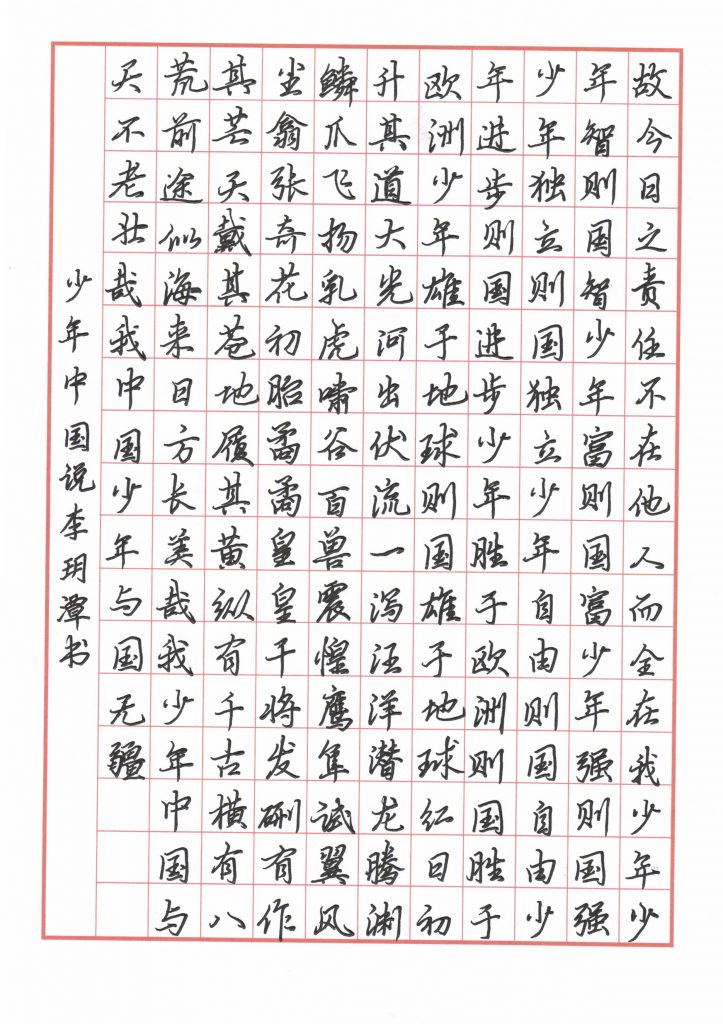 故今日之责任不在他人而全在我少年少
年智则国智少年富则国富少年强则国强
少年独立则国独立少年自由则国自由少
年进步则国进步少年胜于欧洲则国胜于
欧洲少年雄于地球则国雄于地球红日初
升其道大光河出伏流一泻汪洋潜龙腾渊
鳞爪飞扬乳虎啸谷百兽震惶鹰隼试翼风
尘翕张奇花初胎矞矞皇皇干将发硎有作
其芒天戴其苍地履其黄纵有千古横有八
荒前途似海来日方长美哉我少年中国与
天不老壮哉我中国少年与国无疆
少年中国说李玥潭书